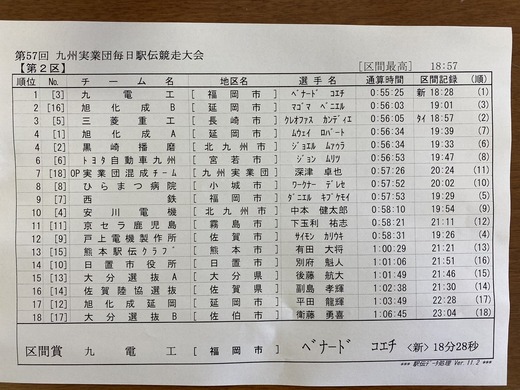 第57回 九州実業団毎日駅伝競走大会
【第２区】 [区間最高] 18:57
順位 No. チーム名 地区名 選手名 通算時間 区間記録 (順)
1 [3] 九電工 [福岡市] ﾍﾞﾅｰﾄﾞ ｺｴﾁ 0:55:25 新 18:28 (1)
2 [16] 旭化成Ｂ [延岡市] ﾏｺﾞﾏ ﾍﾞﾆｴﾙ 0:56:03 19:01 (3)
3 [5] 三菱重工 [長崎市] ｸﾚｵﾌｧｽ ｶﾝﾃﾞｨｴ 0:56:03 ﾀｲ 18:57 (2)
4 [1] 旭化成Ａ [延岡市] ﾑｳｪｲ ﾛﾊﾞｰﾄ 0:56:34 19:39 (7)
4 [2] 黒崎播磨 [北九州市] ｼﾞｮｴﾙ ﾑｧｳﾗ 0:56:34 19:33 (6)
6 [6] トヨタ自動車九州 [宮若市] ｼﾞｮﾝ ﾑﾘﾂ 0:56:53 19:47 (8)
7 [18] OP実業団混成ﾁｰﾑ [九州実業団] 深津 卓也 0:57:26 20:24 (11)
8 [8] ひらまつ病院 [小城市] ﾜｰｸﾅｰ ﾃﾞﾚｾ 0:57:52 20:02 (10)
9 [7] 西鉄 [福岡市] ﾀﾞﾆｴﾙ ｷﾌﾟｹﾓｲ 0:57:53 19:29 (5)
10 [4] 安川電機 [北九州市] 中本 健太郎 0:58:10 19:54 (9)
11 [11] 京セラ鹿児島 [霧島市] 下玉利 祐志 0:58:21 21:11 (12)
12 [9] 戸上電機製作所 [佐賀市] ｻｲﾓﾝ ｶﾘｳｷ 0:58:31 19:26 (4)
13 [15] 熊本駅伝ｸﾗﾌﾞ [熊本市] 有田 大将 1:00:29 21:21 (13)
14 [10] 日置市役所 [日置市] 別府 魁人 1:01:06 21:26 (16)
15 [13] 大分選抜Ａ [大分県] 後藤 航大 1:01:49 21:46 (15)
16 [14] 佐賀陸協選抜 [佐賀県] 副島 孝輝 1:02:38 21:30 (14)
17 [12] 旭化成延岡 [延岡市] 平田 龍輝 1:03:49 22:28 (17)
18 [17] 大分選抜Ｂ [佐伯市] 衛藤 勇喜 1:06:45 23:04 (18)
区間賞 九電工 [福岡市] ﾍﾞﾅｰﾄﾞ ｺｴﾁ <新> 18分28秒
*** 駅伝ﾃﾞｰﾀ処理 Ver.11.2 ***